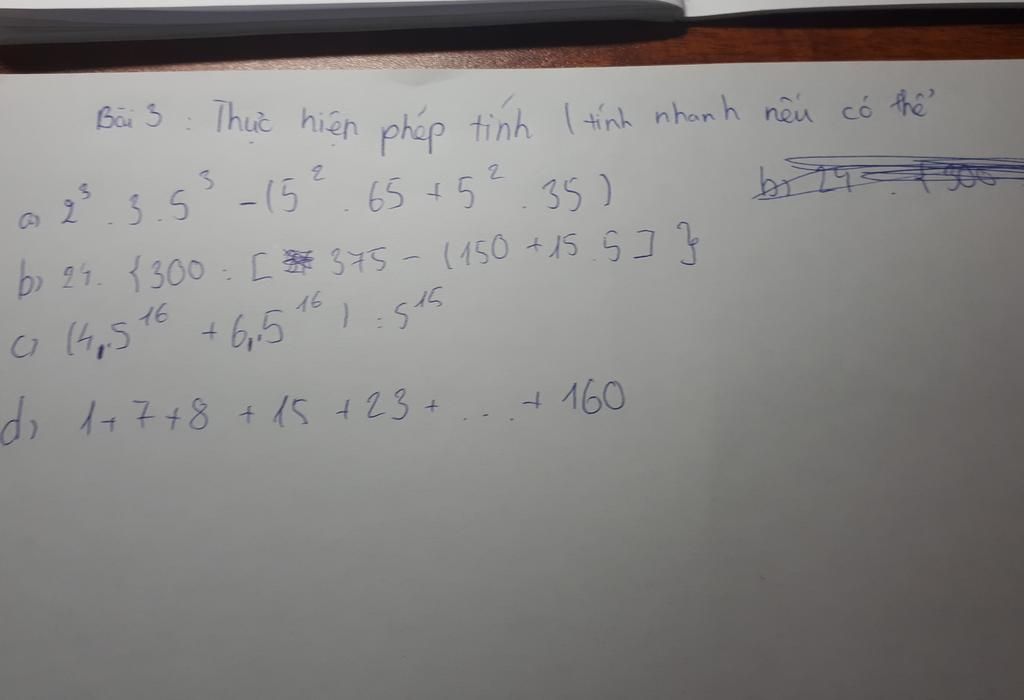 Bài 3 : Thực hiện phép tính ( tính nhanh nếu có thể
a) 2³ . 3 . 5³ - (5² . 65 + 5² . 35 )
b) 24. {300 : [ 375 - (150 + 15 . 5 ] }
c) (4,5¹⁶ + 6,5¹⁶ ) : 5¹⁵
d) 1 + 7 + 8 + 15 + 23 + ... + 160